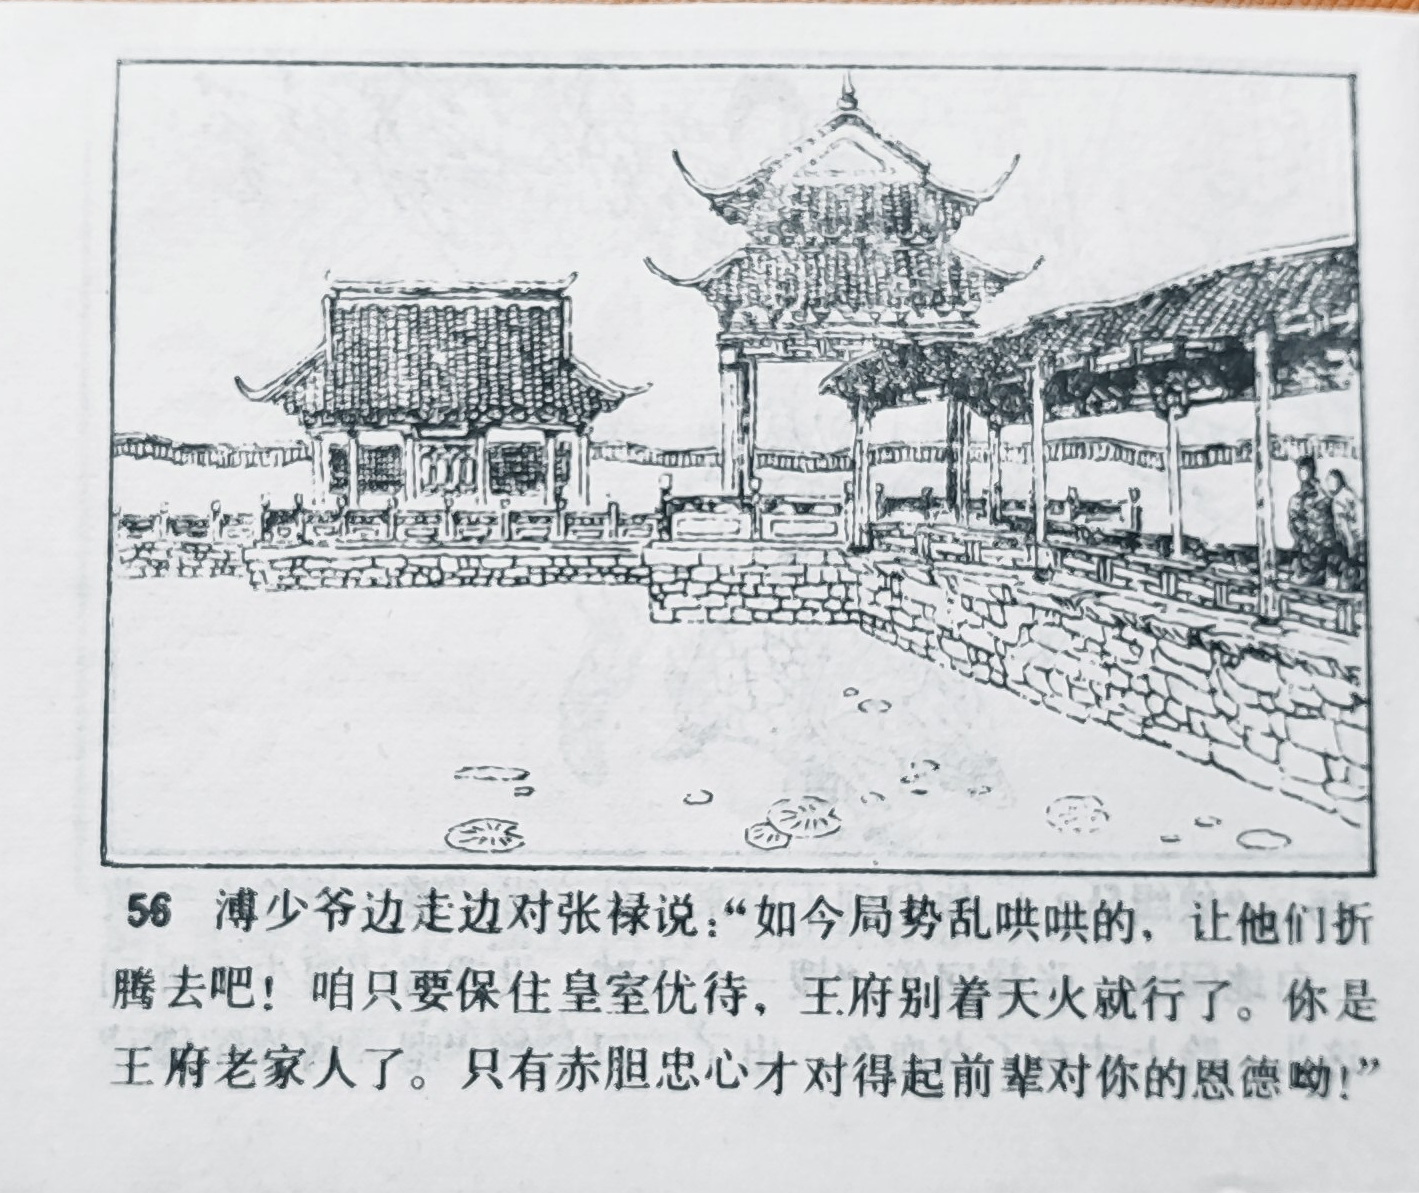 56 溥少爷边走边对张禄说：“如今局势乱哄哄的，让他们折
腾去吧！咱只要保住皇室优待，王府别着天火就行了。你是
王府老家人了。只有赤胆忠心才对得起前辈对你的恩德呦！”